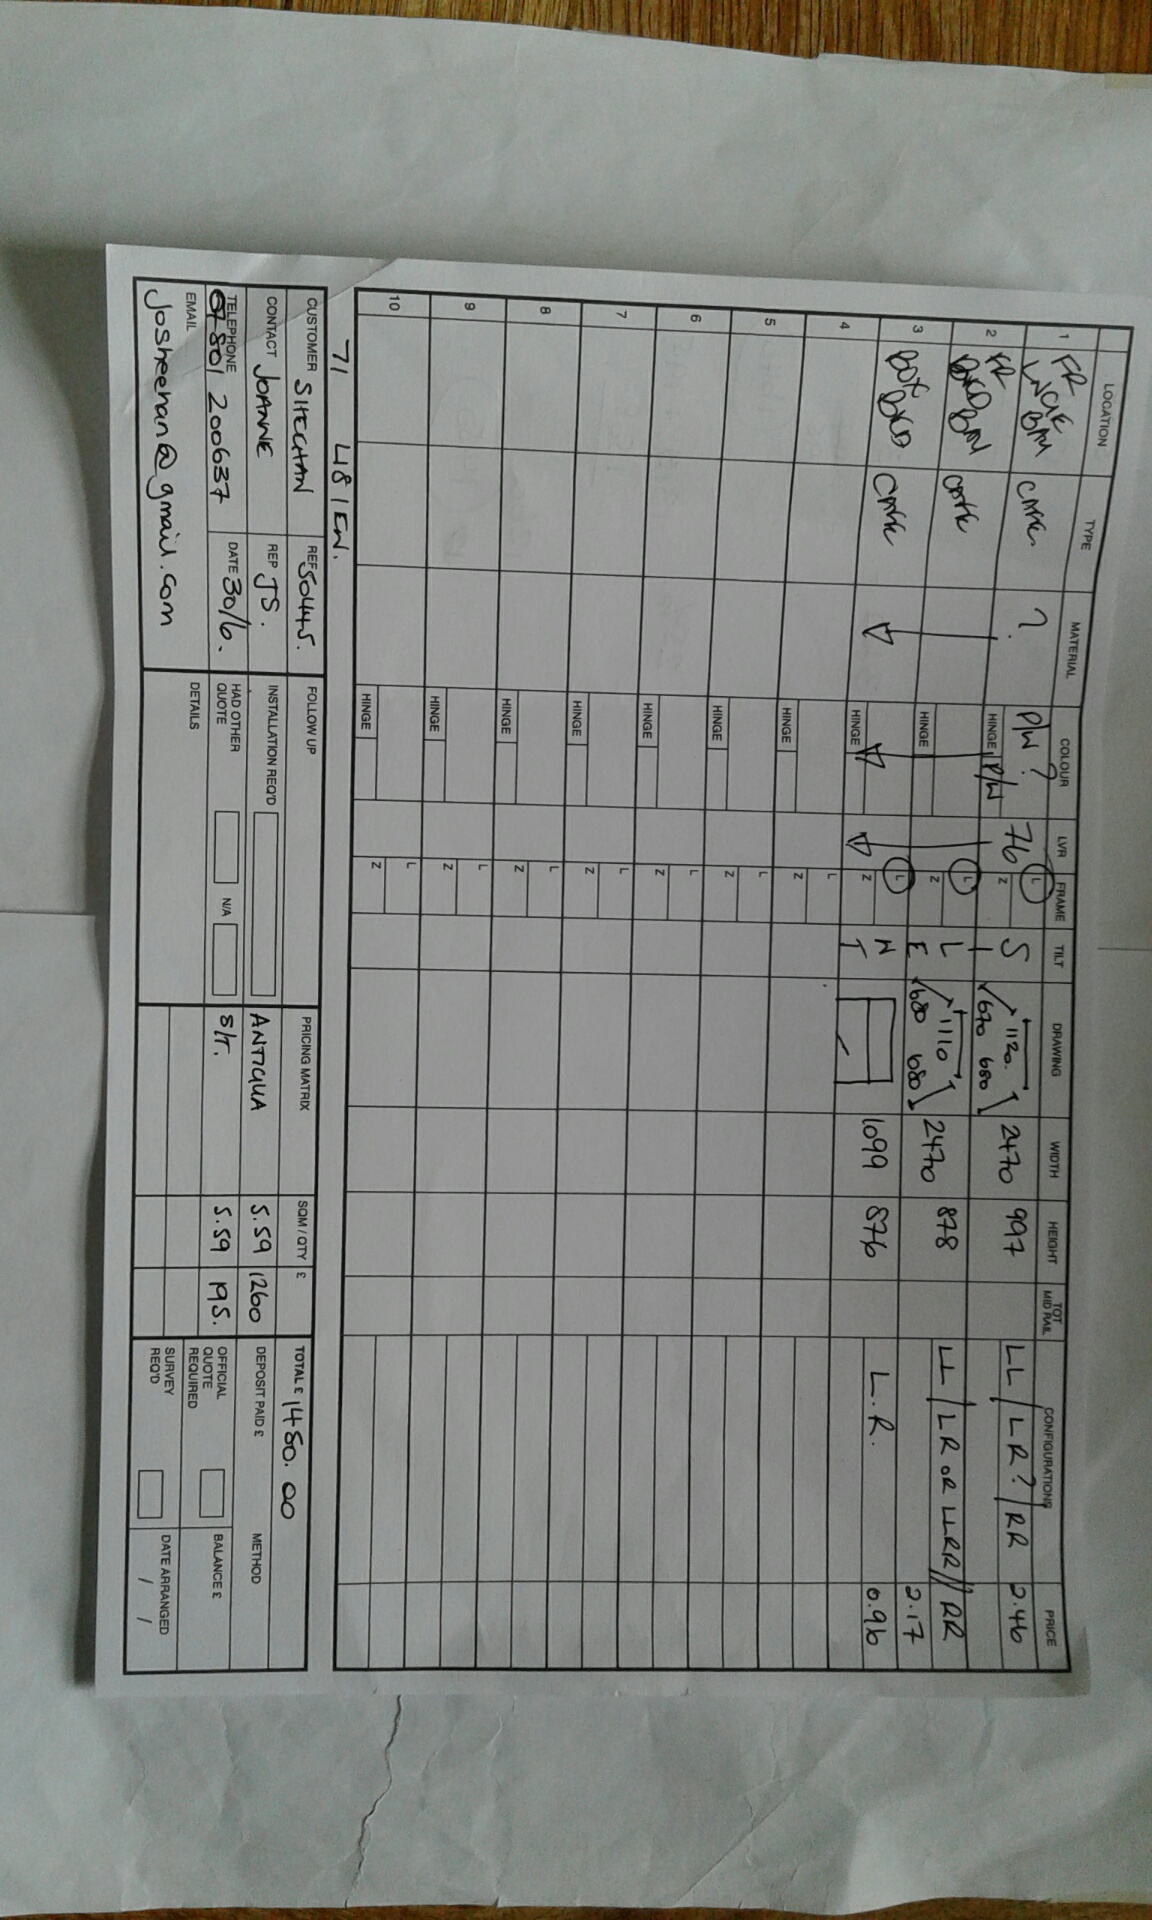 LOCATION TYPE MATERIAL COLOUR LVR FRAME TILT DRAWING WIDTH HEIGHT TOT MID RAIL CONFIGURATIONS PRICE
1 FR BAY ? P/W? 76 L S 1120. 2470 997 LL / LR? / RR 2.46
HINGE P/W Z I 670 680
2 FR BED BAY L L 1110 2470 878 LL / LR OR LLRR // RR
HINGE Z E 680 680 2.17
3 BOX BED CAFE L N 1099 876 L.R. 0.96
HINGE Z T
4 L
HINGE Z
5 L
HINGE Z
6 L
HINGE Z
7 L
HINGE Z
8 L
HINGE Z
9 L
HINGE Z
10 L
HINGE Z
71 481EW.
CUSTOMER SHEEHAN REF 50445. FOLLOW UP PRICING MATRIX SQM / QTY £ TOTAL £ 1480.00
CONTACT JOANNE REP JS. INSTALLATION REQ'D ANTIGUA 5.59 1260 DEPOSIT PAID £ METHOD
TELEPHONE 07801 200637 DATE 30/6. HAD OTHER QUOTE N/A S/T. 5.59 195. OFFICIAL QUOTE REQUIRED BALANCE £
EMAIL Josheehan@gmail.com DETAILS SURVEY REQ'D DATE ARRANGED / /